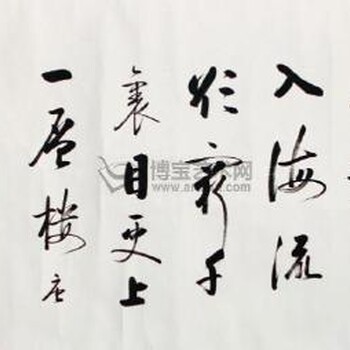 入海流
欲穷千
里目更上
一层楼 唐
博宝艺术网